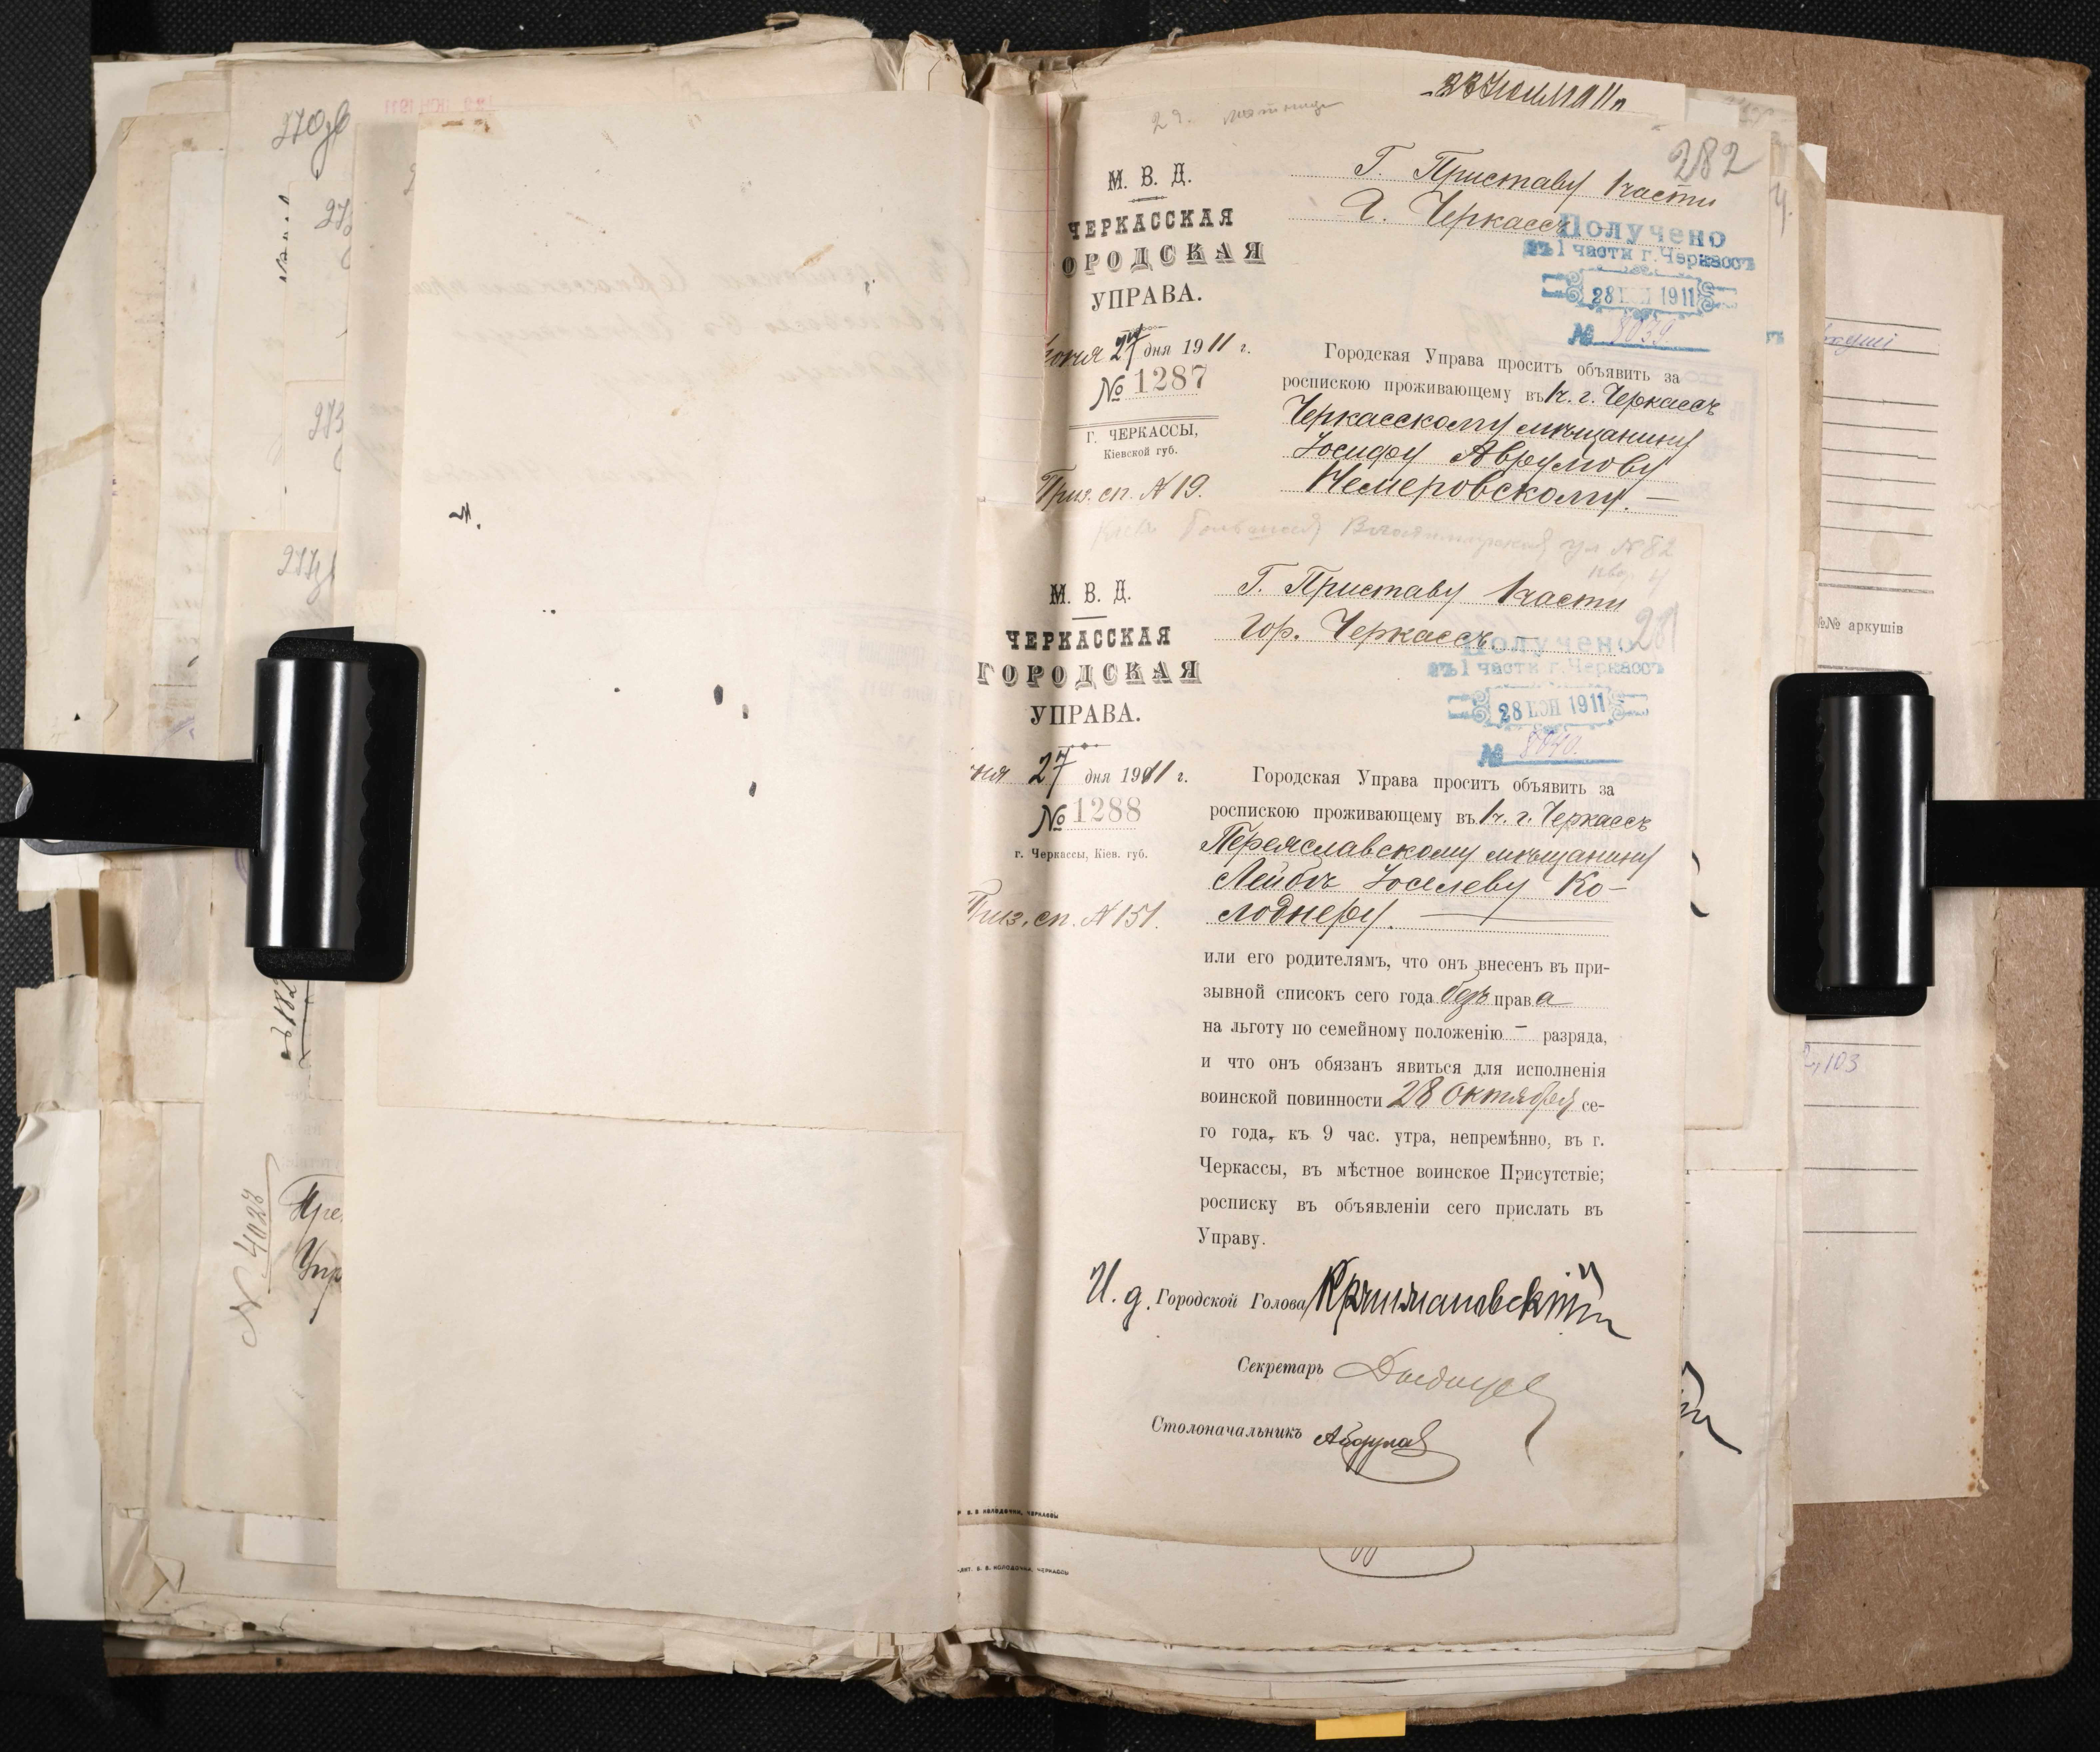 270
273
№ 4023
282
М. В. Д.
ЧЕРКАССКАЯ
ОРОДСКАЯ
УПРАВА.
27 дня 1911 г.
№ 1287
Г. ЧЕРКАССЫ,
Кіевской губ.
Приз. сп. № 19.
Г. Приставу 1 части
г. Черкассъ
Получено
въ 1 части г. Черкассъ
28 ІЮН 1911
№ 8039.
Городская Управа проситъ объявить за
роспискою проживающему въ 1 ч. г. Черкассъ
Черкасскому мѣщанину
Іосифу Аврумову
Немеровскому. —
ул № 82
М. В. Д.
ЧЕРКАССКАЯ
ГОРОДСКАЯ
УПРАВА.
ня 27 дня 1911 г.
№ 1288
г. Черкассы, Кіев. губ.
Приз. сп. № 151.
Г. Приставу 1 части
гор. Черкассъ
281
Получено
въ 1 части г. Черкассъ
28 ІЮН 1911
№ 8040.
Городская Управа проситъ объявить за
роспискою проживающему въ 1 ч. г. Черкассъ
Переяславскому мѣщанину
Лейбѣ Іоселеву Ко-
лоднеру. —
или его родителямъ, что онъ внесенъ въ при-
зывной списокъ сего года безъ права
на льготу по семейному положенію - разряда,
и что онъ обязанъ явиться для исполненія
воинской повинности 28 Октября се-
го года, къ 9 час. утра, непремѣнно, въ г.
Черкассы, въ мѣстное воинское Присутствіе;
росписку въ объявленіи сего прислать въ
Управу.
И. д. Городской Голова
Секретарь
Столоначальникъ
В. В. КОЛОДОЧКИ, ЧЕРКАССЫ
В. В. КОЛОДОЧКИ, ЧЕРКАССЫ
№№ аркушів
103